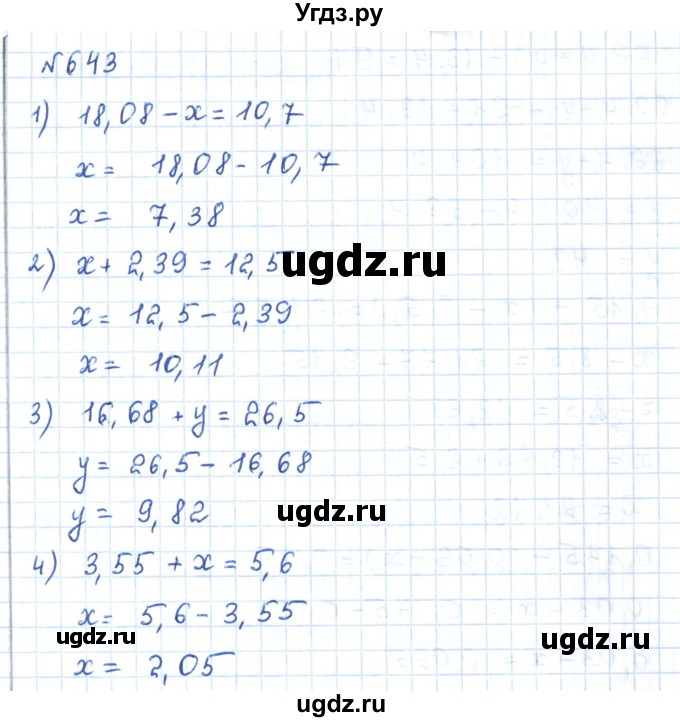 Угдз.ру
№643
1) 18,08 - x = 10,7
x = 18,08 - 10,7
x = 7,38
2) x + 2,39 = 12,5
ugdz.ru
x = 12,5 - 2,39
x = 10,11
3) 16,68 + y = 26,5
y = 26,5 - 16,68
y = 9,82
ugdz.ru
4) 3,55 + x = 5,6
x = 5,6 - 3,55
ugdz.ru
ugdz.ru
x = 2,05
ugdz.ru